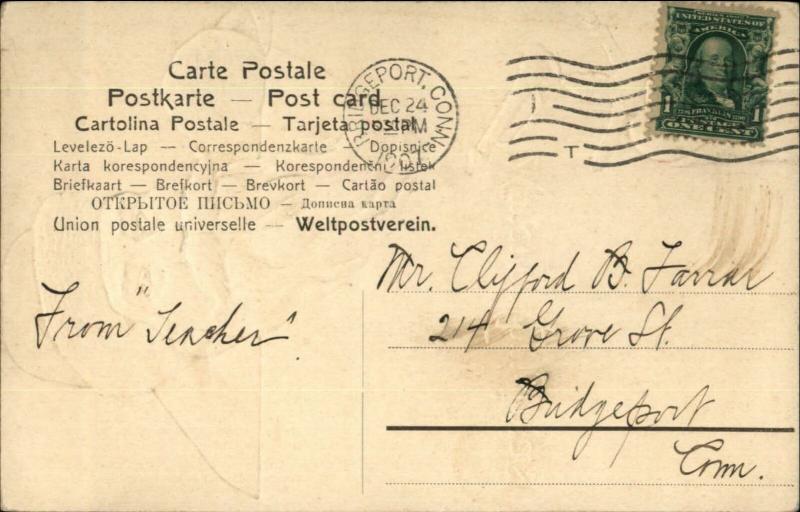 Carte Postale
Postkarte — Post card
Cartolina Postale — Tarjeta postal
Levelezö-Lap — Correspondenzkarte — Dopisnice
Karta korespondencyjna — Korespondenční listek
Briefkaart — Brefkort — Brevkort — Cartão postal
ОТКРЫТОЕ ПИСЬМО — Дописна карта
Union postale universelle — Weltpostverein.
BRIDGEPORT, CONN.
DEC 24
PM
1907
T
UNITED STATES OF
AMERICA
1 FRANKLIN 1
ONE CENT
From "Teacher".
Mr. Clifford B. Farrar
214 Grove St.
Bridgeport
Conn.